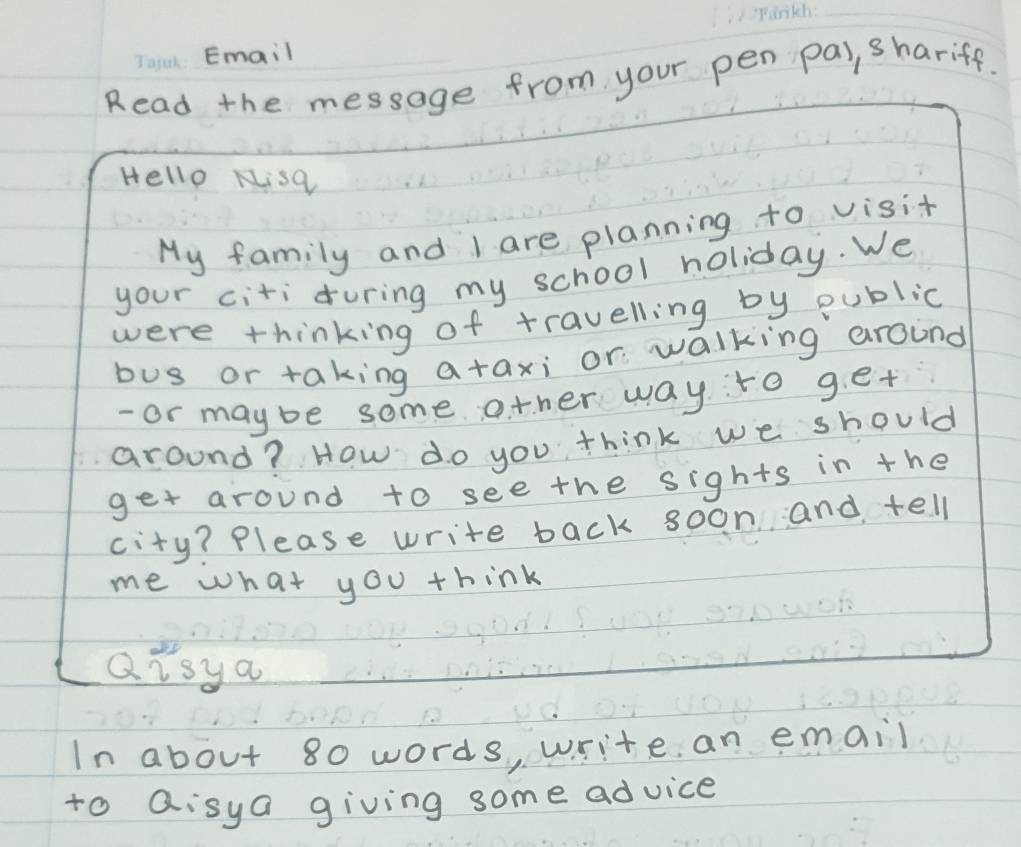 Tarikh:
Tajuk: Email
Read the message from your pen pal, shariff.
Hello Nisa
My family and I are planning to visit
your citi during my school holiday. We
were thinking of travelling by public
bus or taking a taxi or walking around
- or maybe some other way to get
around? How do you think we should
get around to see the sights in the
city? Please write back soon and tell
me what you think
Qisya
In about 80 words, write an email
to Qisya giving some advice